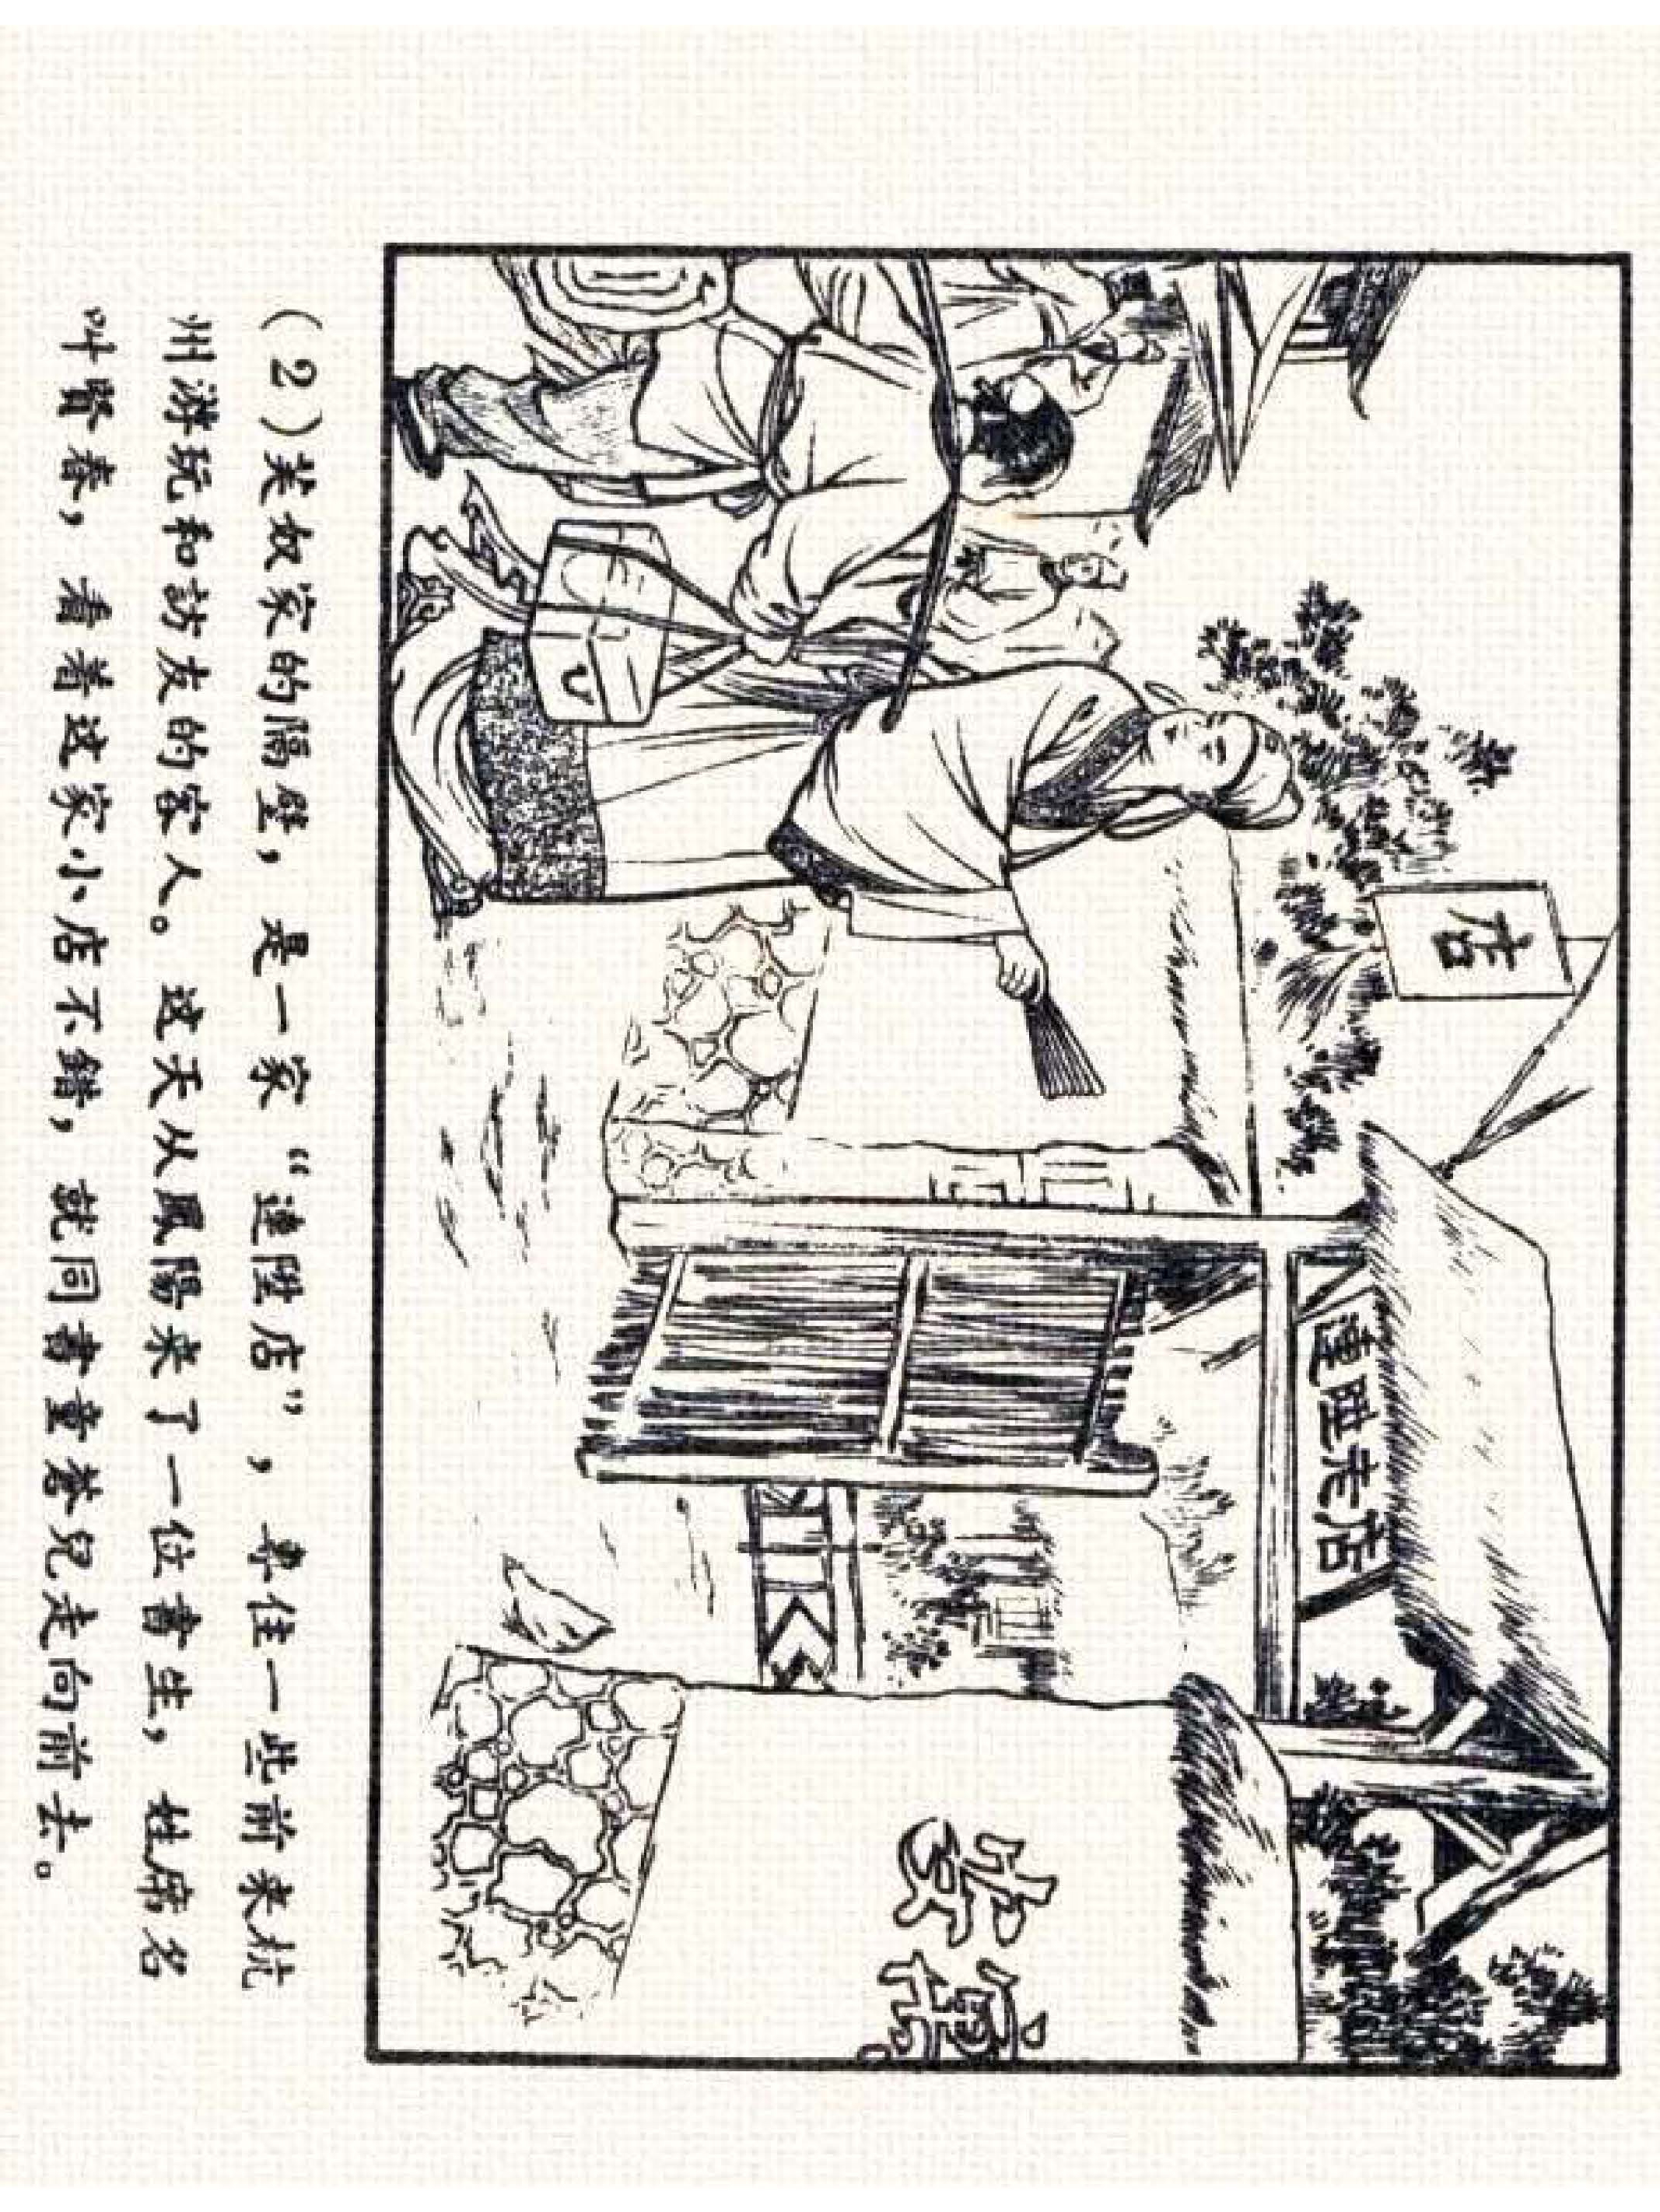 店
連陞老店
安寓
(2)芙奴家的隔壁，是一家“連陞店”，专住一些前来杭
州游玩和訪友的客人。这天从鳳陽来了一位書生，姓席名
春，看着这家小店不錯，就同書童荅兒走向前去。